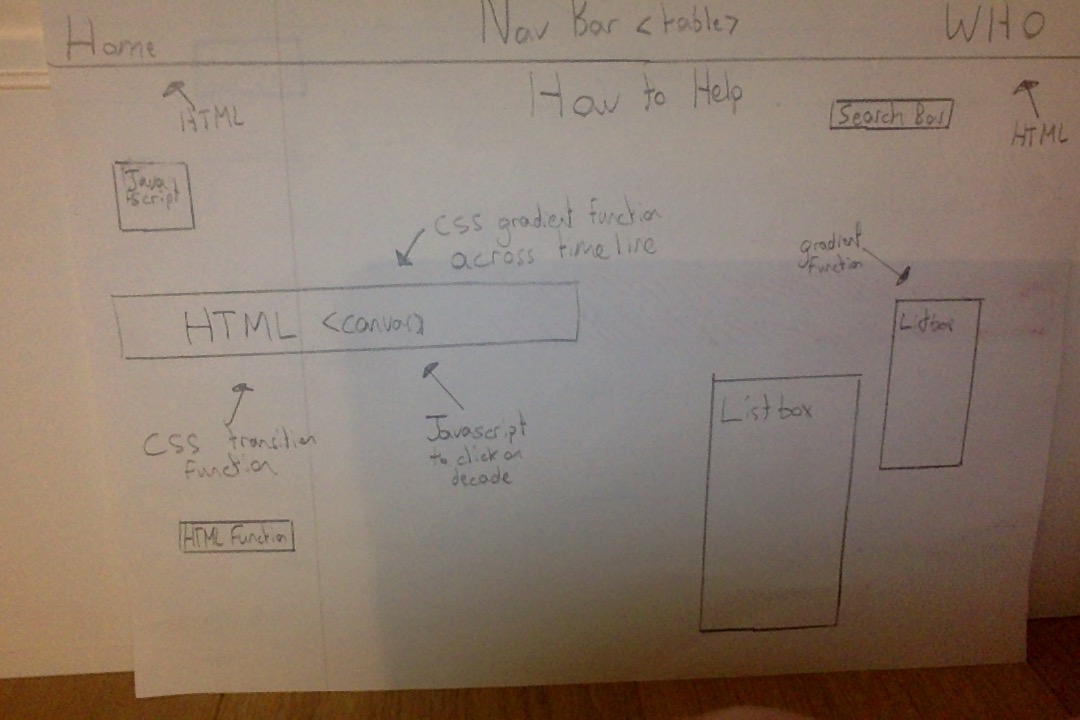 Home
Nav Bar <table>
WHO
How to Help
HTML
Search Bar
HTML
Java
script
CSS gradient function
across timeline
gradient
function
HTML <canvas>
Listbox
Listbox
CSS transition
function
Javascript
to click on
decade
HTML Function